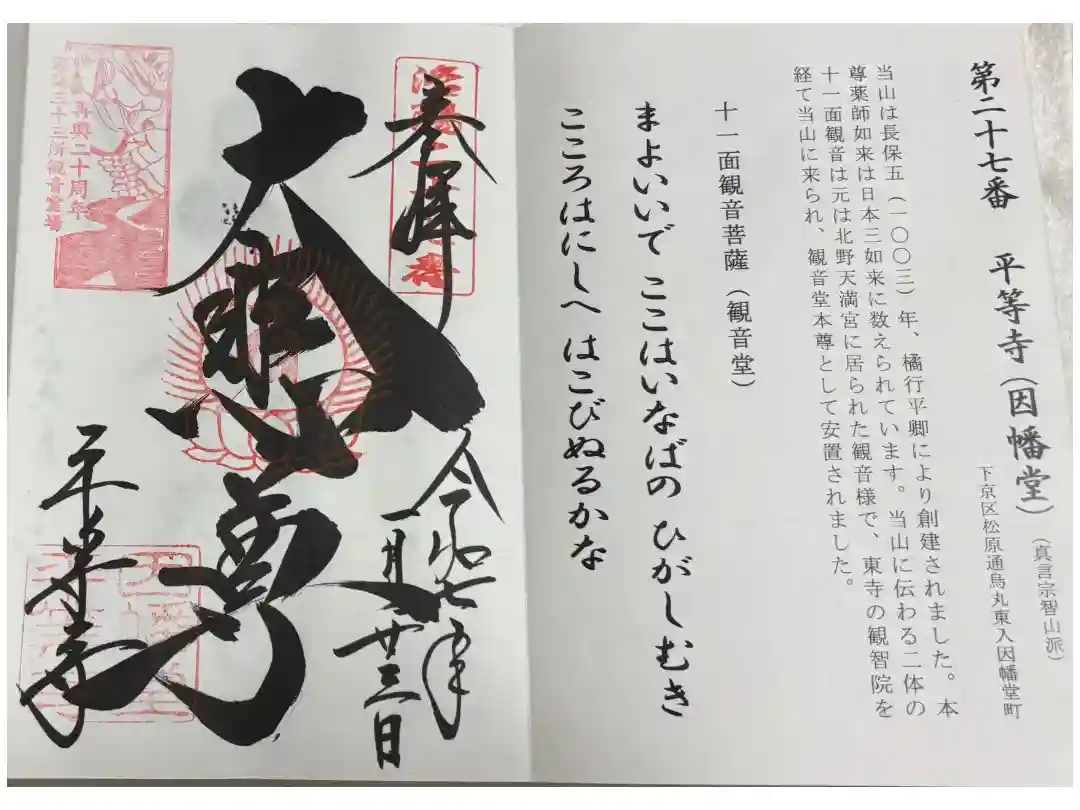 第二十七番 平等寺（因幡堂）（真言宗智山派）
下京区松原通烏丸東入因幡堂町
当山は長保五（一〇〇三）年、橘行平卿により創建されました。本
尊薬師如来は日本三如来に数えられています。当山に伝わる二体の
十一面観音は元は北野天満宮に居られた観音様で、東寺の観智院を
経て当山に来られ、観音堂本尊として安置されました。
十一面観音菩薩（観音堂）
まよいいで ここはいなばの ひがしむき
こころはにしへ はこびぬるかな
奉拝
令和七年
一月廿三日
大悲尊
平等寺
再興二十周年
三十三所観音霊場